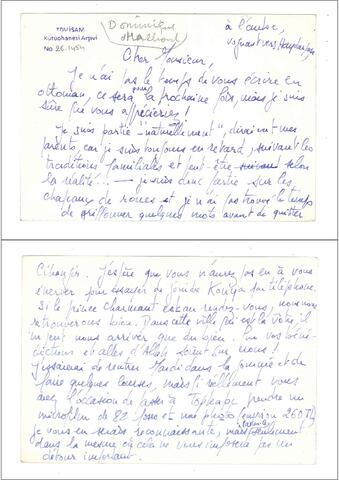 TOVİSAM
Kütüphanesi Arşivi
No 2E-1454
Dominique
Mathout
à l'aube,
voguant vers
Cher Monsieur,
Je n'ai pas le temps de vous écrire en
ottoman, ce sera pour la prochaine fois, mais je suis
sûre que vous apprécierez !
Je suis partie "naturellement", diraient mes
parents, car je suis toujours en retard, suivant les
traditions familiales et peut-être suivant selon
la réalité... — je suis donc partie sur les
chapeaux de roues et je n'ai pas trouvé le temps
de griffonner quelques mots avant de quitter
Cihangir. J'espère que vous n'aurez pas eu à vous
énerver pour essayer de joindre Konya par téléphone.
Si le prince charmant est au rendez-vous, nous nous
retrouverons bien. Dans cette ville qui est la vôtre, il
ne peut nous arriver que du bien. Que vos béné-
dictions et celles d'Allah soient sur nous !
J'essaierai de rentrer Mardi dans la journée et de
faire quelques courses, mais si réellement vous
avez l'occasion de passer à Topkapı prendre un
microfilm de 82 poses et ma photo (environ 260 TL)
je vous en serais reconnaissante, mais seulement
dans la mesure où cela ne vous imposera pas un
détour important.